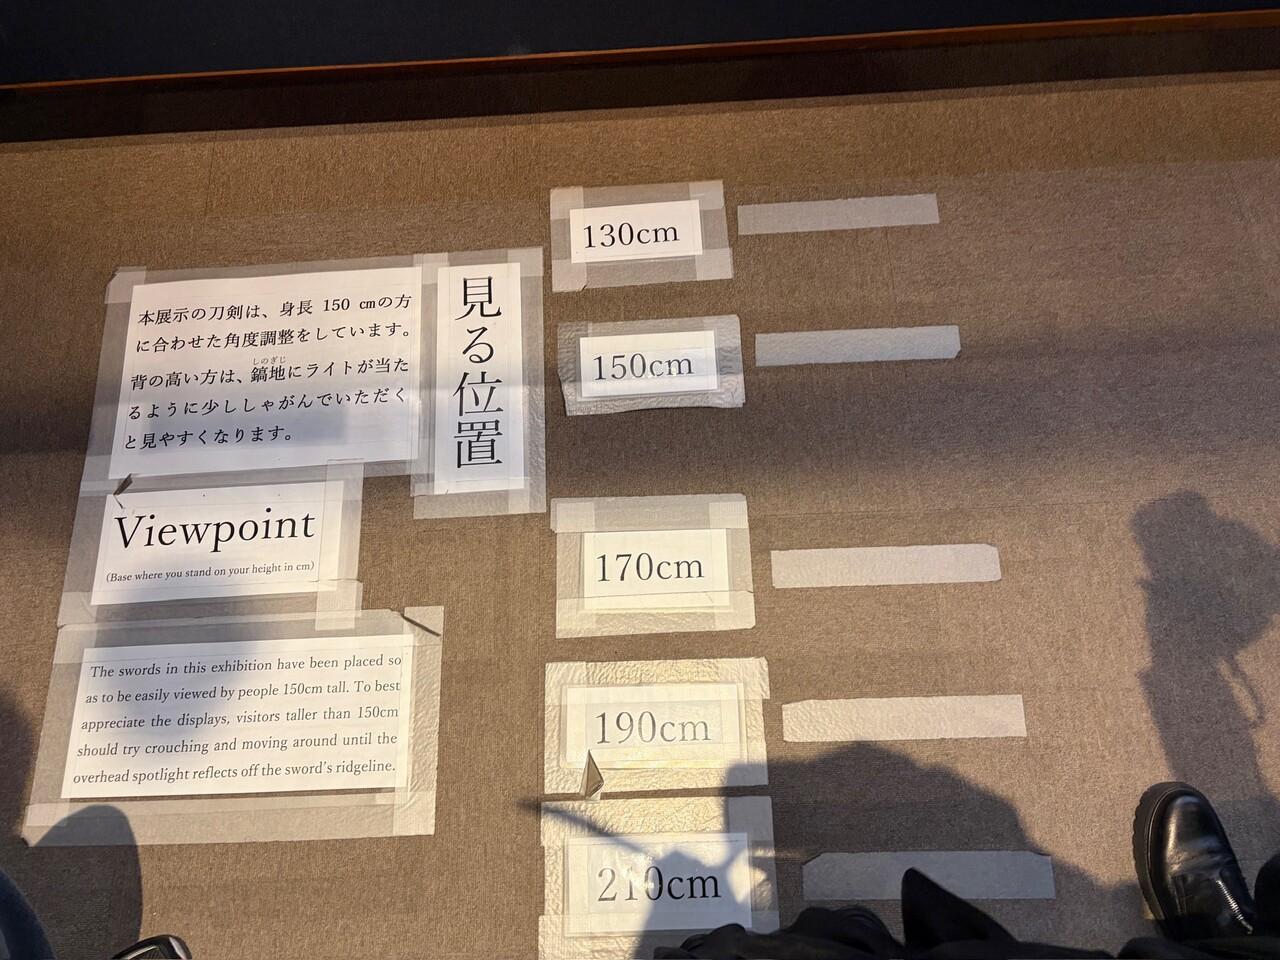 本展示の刀剣は、身長 150 ㎝の方
に合わせた角度調整をしています。
しのぎじ
背の高い方は、鎬地にライトが当た
るように少ししゃがんでいただく
と見やすくなります。
見る位置
Viewpoint
(Base where you stand on your height in cm)
The swords in this exhibition have been placed so
as to be easily viewed by people 150cm tall. To best
appreciate the displays, visitors taller than 150cm
should try crouching and moving around until the
overhead spotlight reflects off the sword's ridgeline.
130cm
150cm
170cm
190cm
210cm